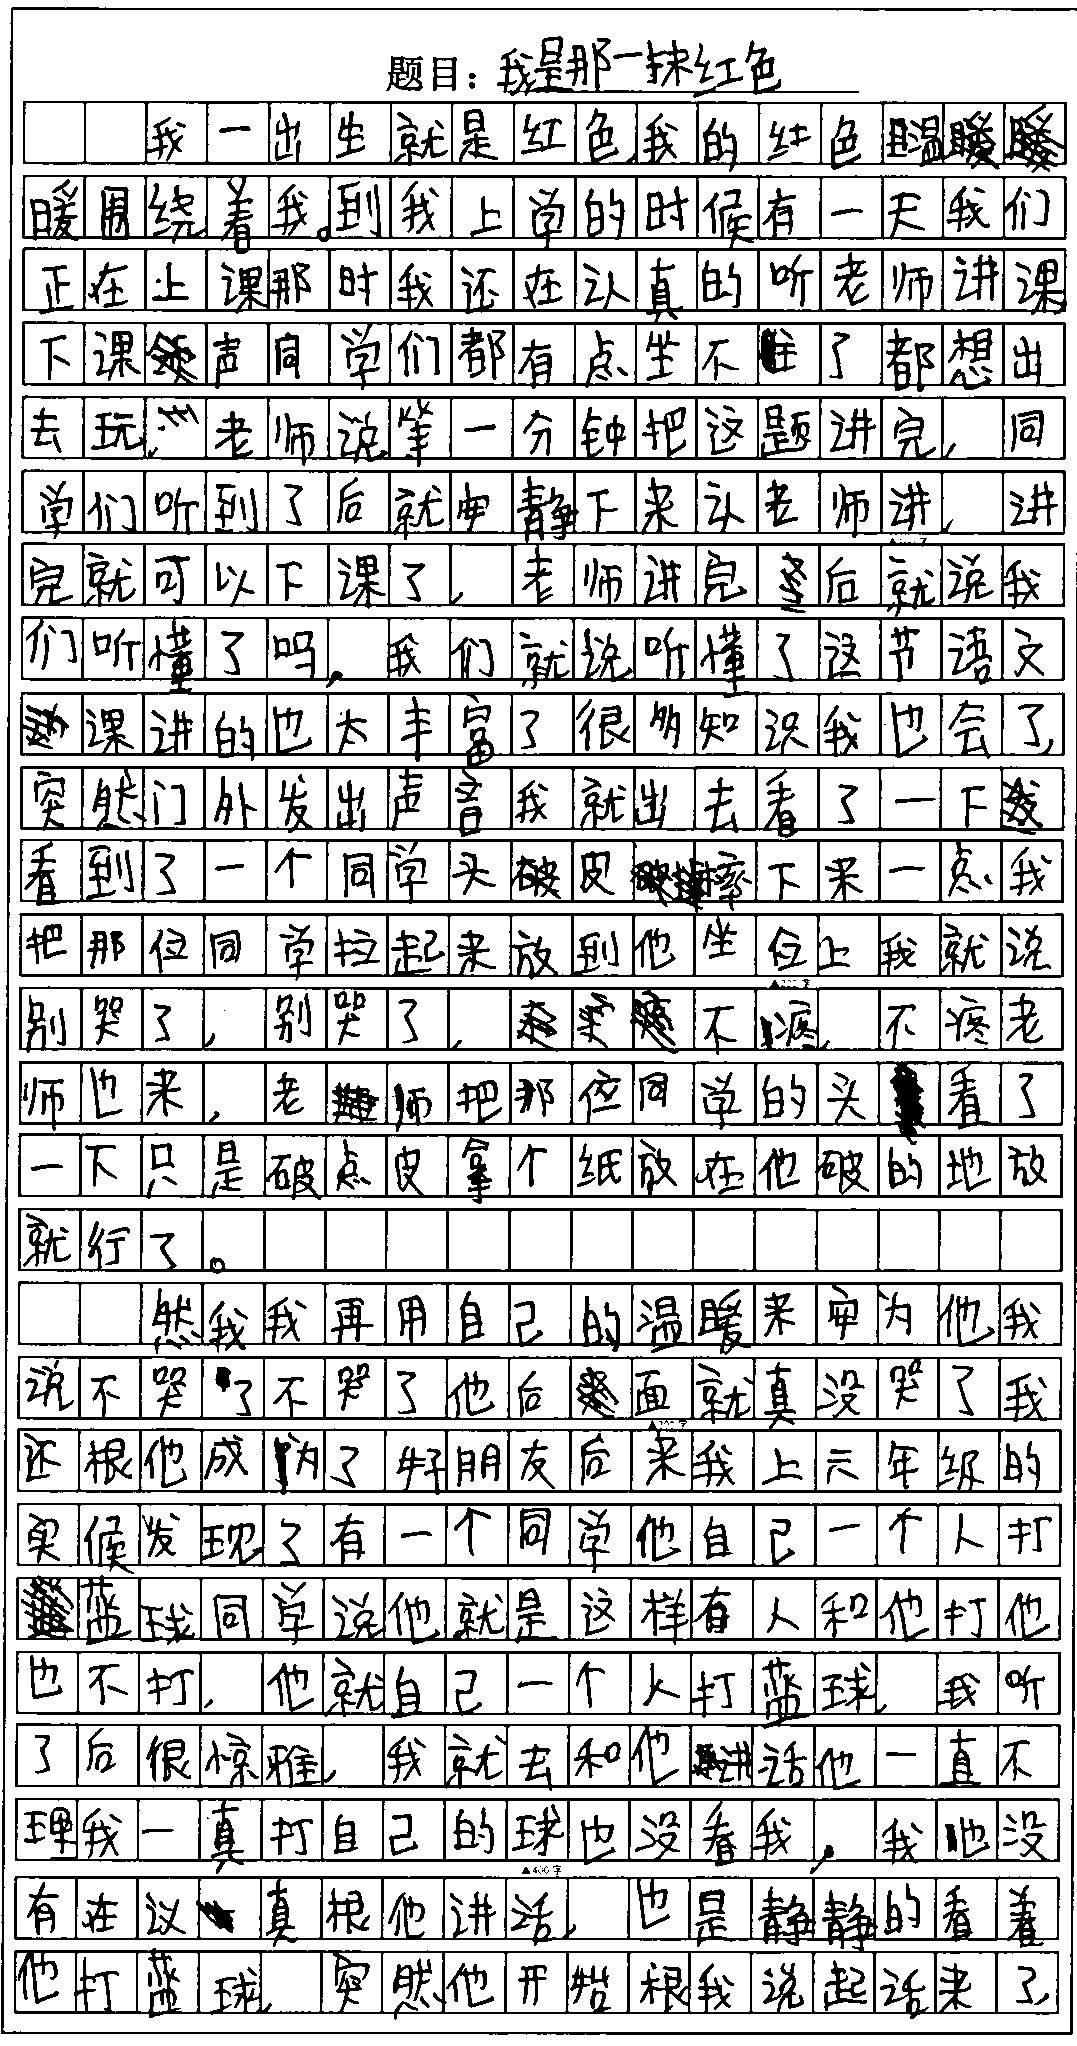 题目：我是那一抹红色
我一出生就是红色,我的红色温暖
暖围绕着我。到我上学的时候有一天我们
正在上课那时我还在认真的听老师讲课
下课 声同学们都有点坐不住了都想出
去玩, 老师说等一分钟把这题讲完, 同
学们听到了后就安静下来认老师讲, 进
完就可以下课了, 老师讲完 后就说我
们听懂了吗, 我们就说听懂了这节语文
课讲的也太丰富了很多知识我也会了,
突然门外发出声音我就出去看了一下
看到了一个同学头破皮 摔下来一点我
把那位同学拉起来放到他坐位上我就说
别哭了, 别哭了, 不疼, 不疼老
师也来, 老师把那位同学的头 看了
一下只是破点皮拿个纸放在他破的地放
就行了。
然我我再用自己的温暖来安为他我
说不哭了不哭了他后面就真没哭了我
还根他成为了好朋友后来我上六年级的
实候发现了有一个同学他自己一个人打
蓝球同学说他就是这样有人和他打他
也不打, 他就自己一个人打蓝球, 我听
了后很惊雅, 我就去和他讲话他一直不
理我一真打自己的球也没看我, 我也没
有在议 真根他讲活, 也是静静的看着
他打蓝球, 突然他开始根我说起话来了,
▲400字